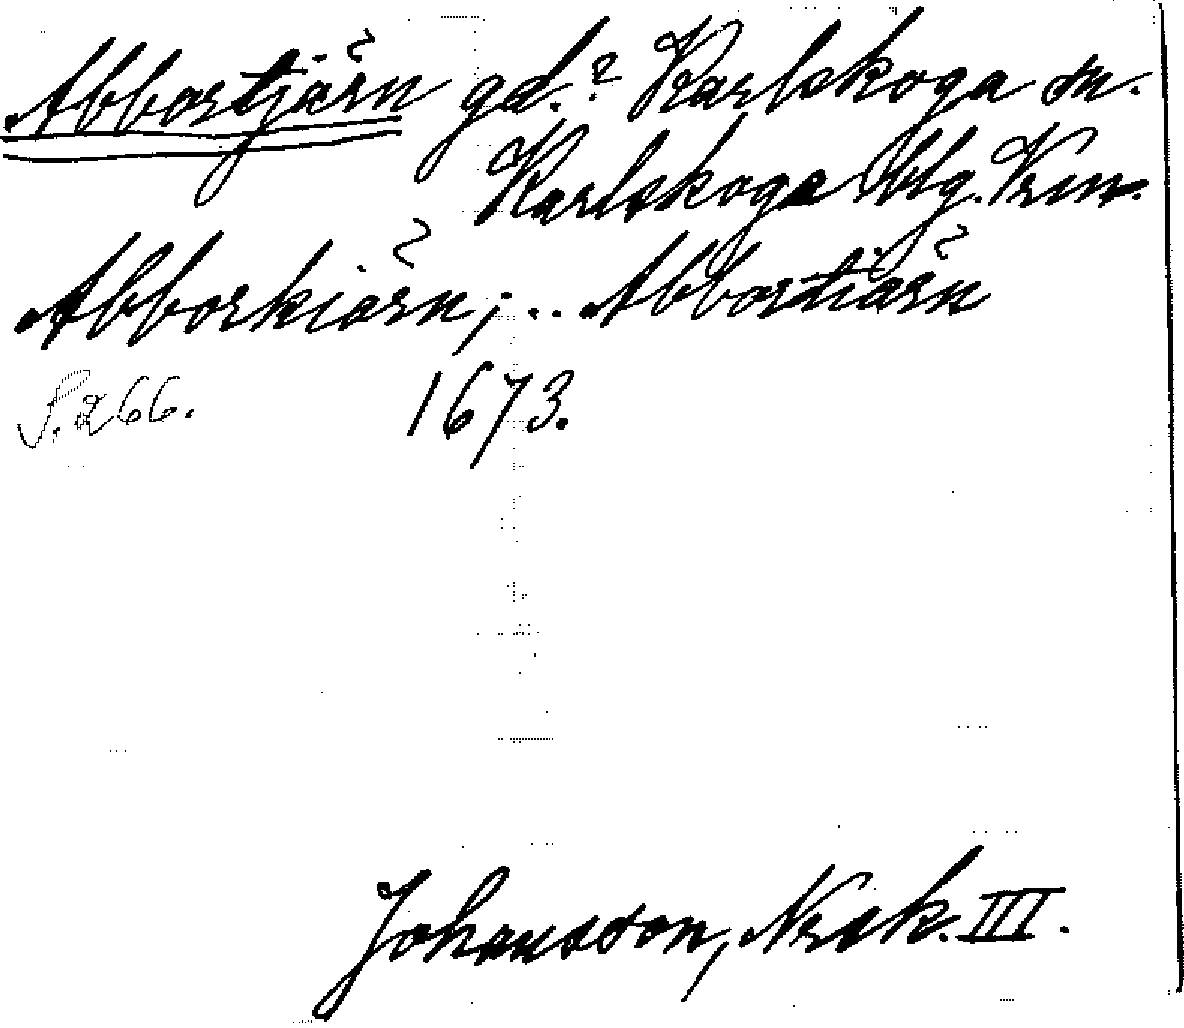 Abbortjärn gd.? Karlskoga sn.
Karlskoga blg. Vrm.
Abborkiärn; .. Abbortiärn
S. 266. 1673.
Johansson, Nrsk. III.